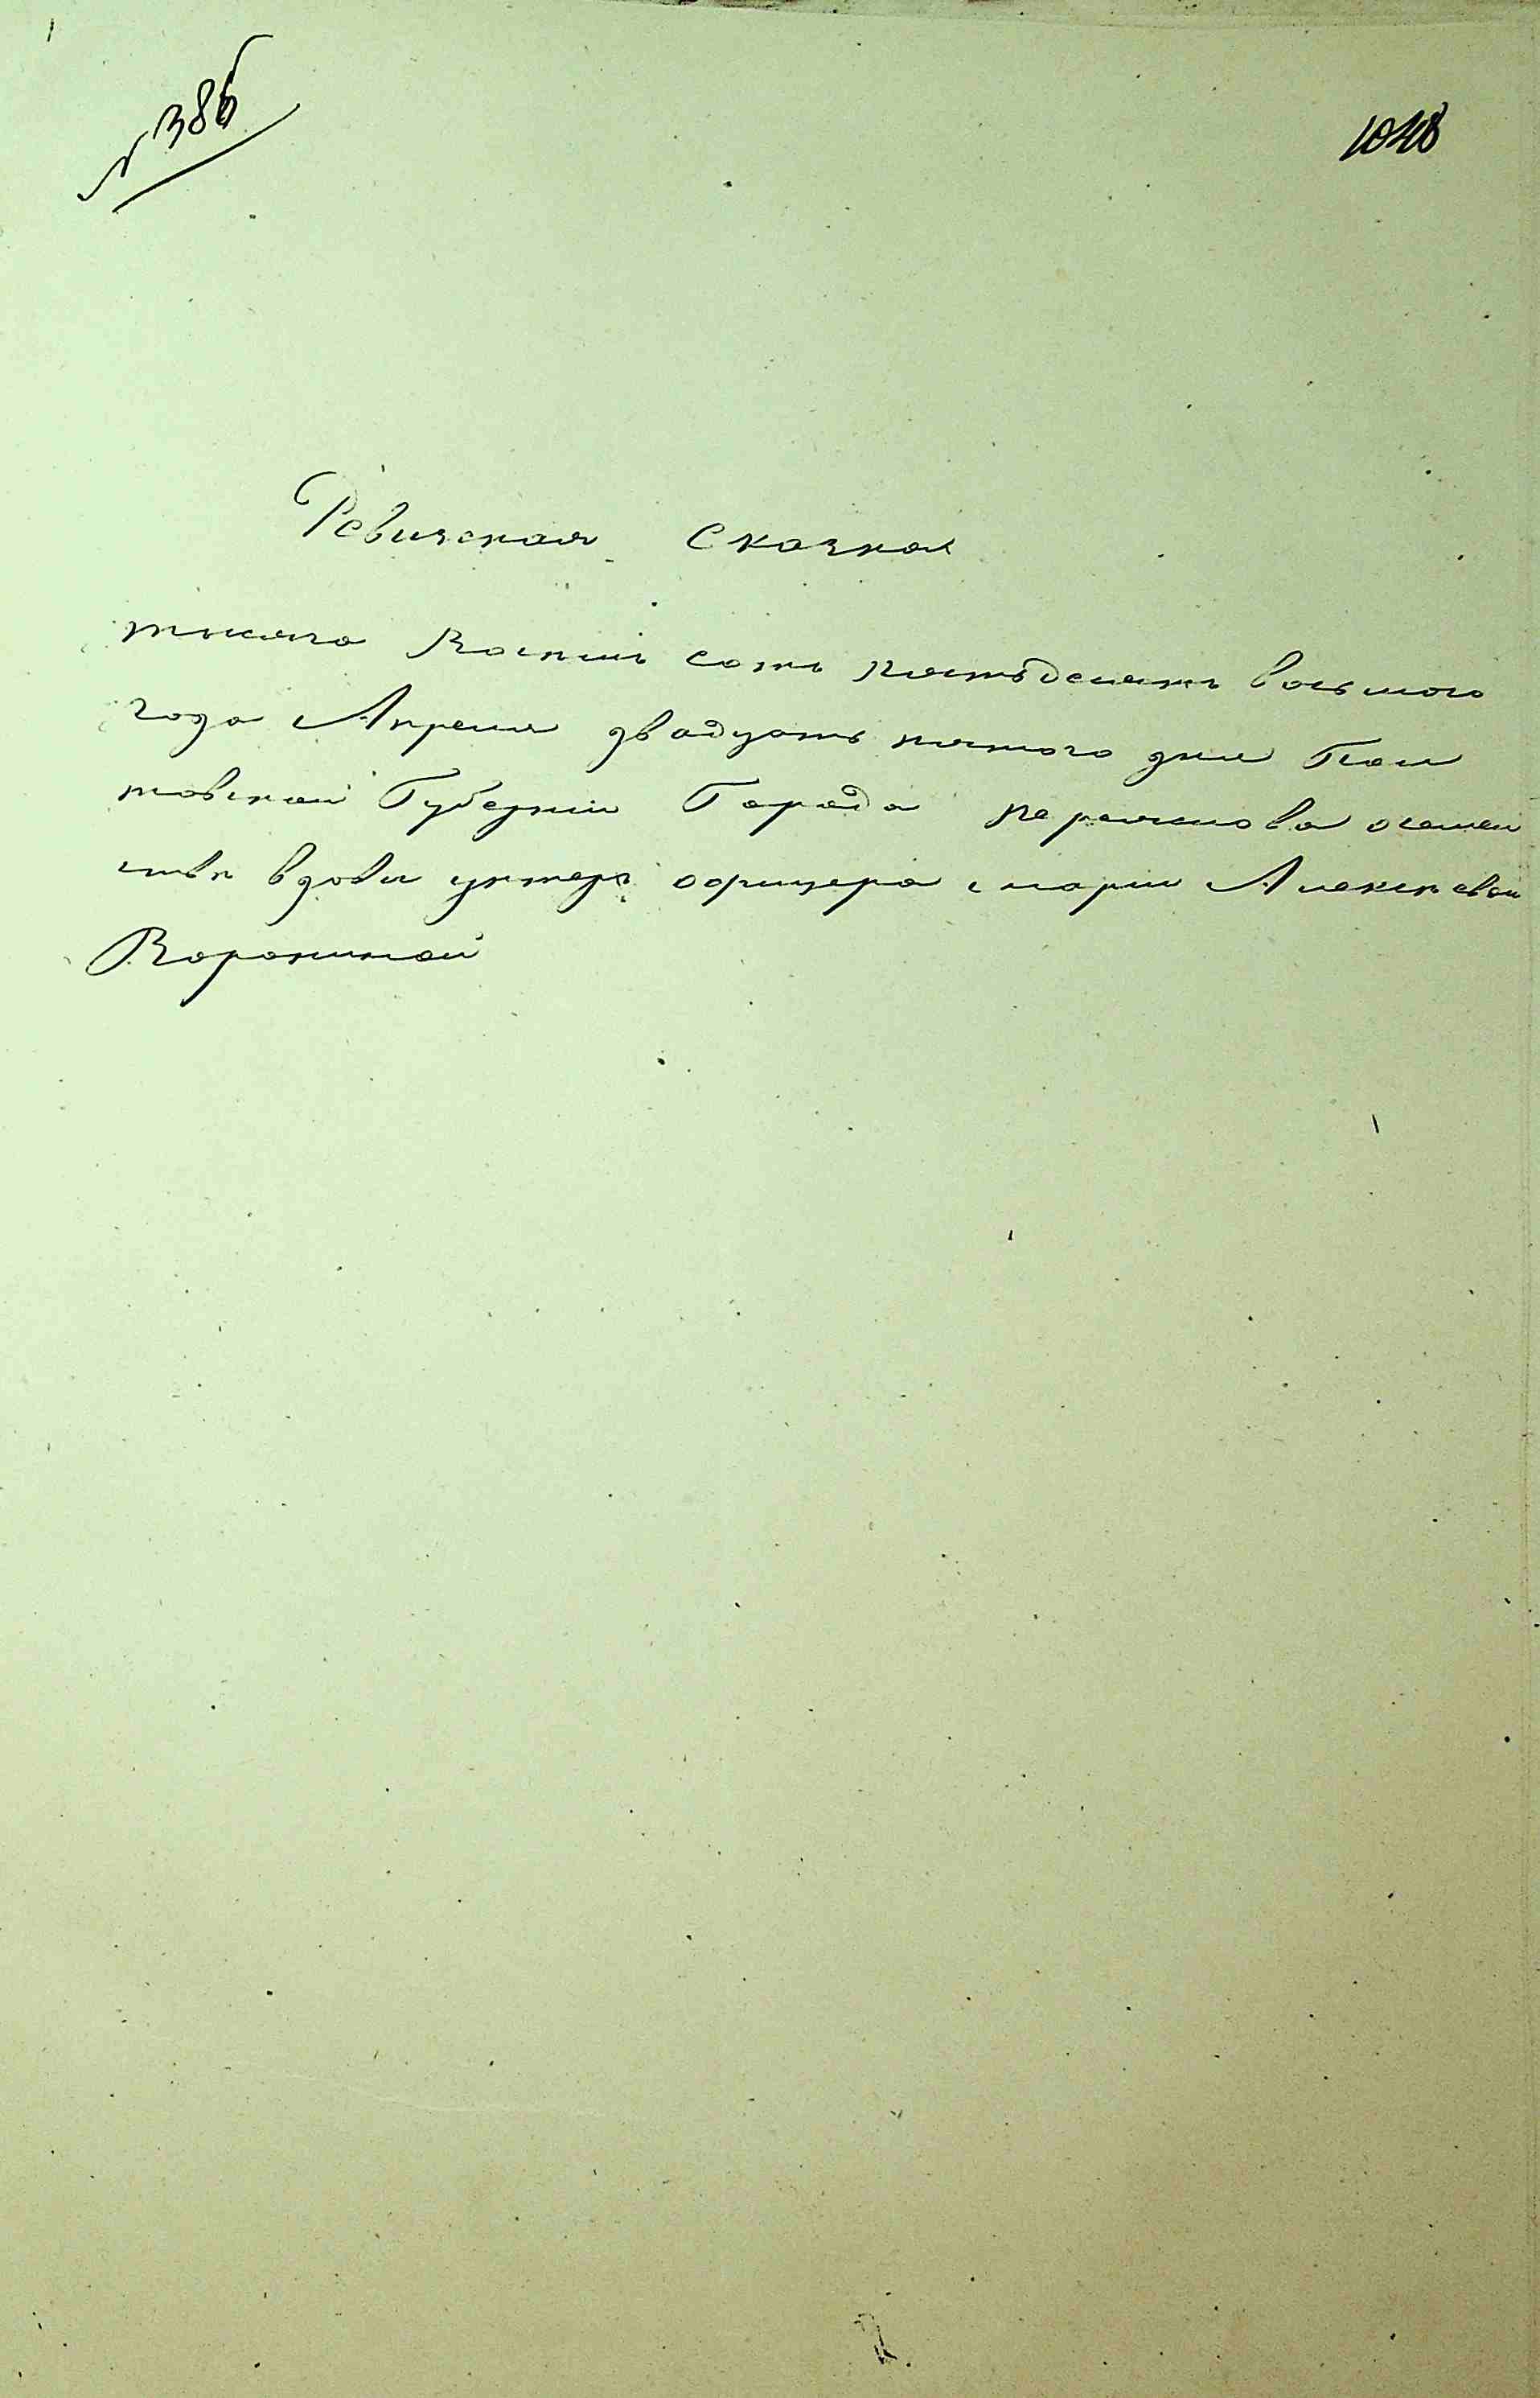 № 386
1048
Ревизская Сказка
тысяча Восемь сотъ пятьдесятъ восьмого
года Апреля двадцать пятого дня Пол
товской Губерніи Города Переяслова о семей
ствѣ вдовы унтеръ офицера Маріи Алексѣевой
Ворониной